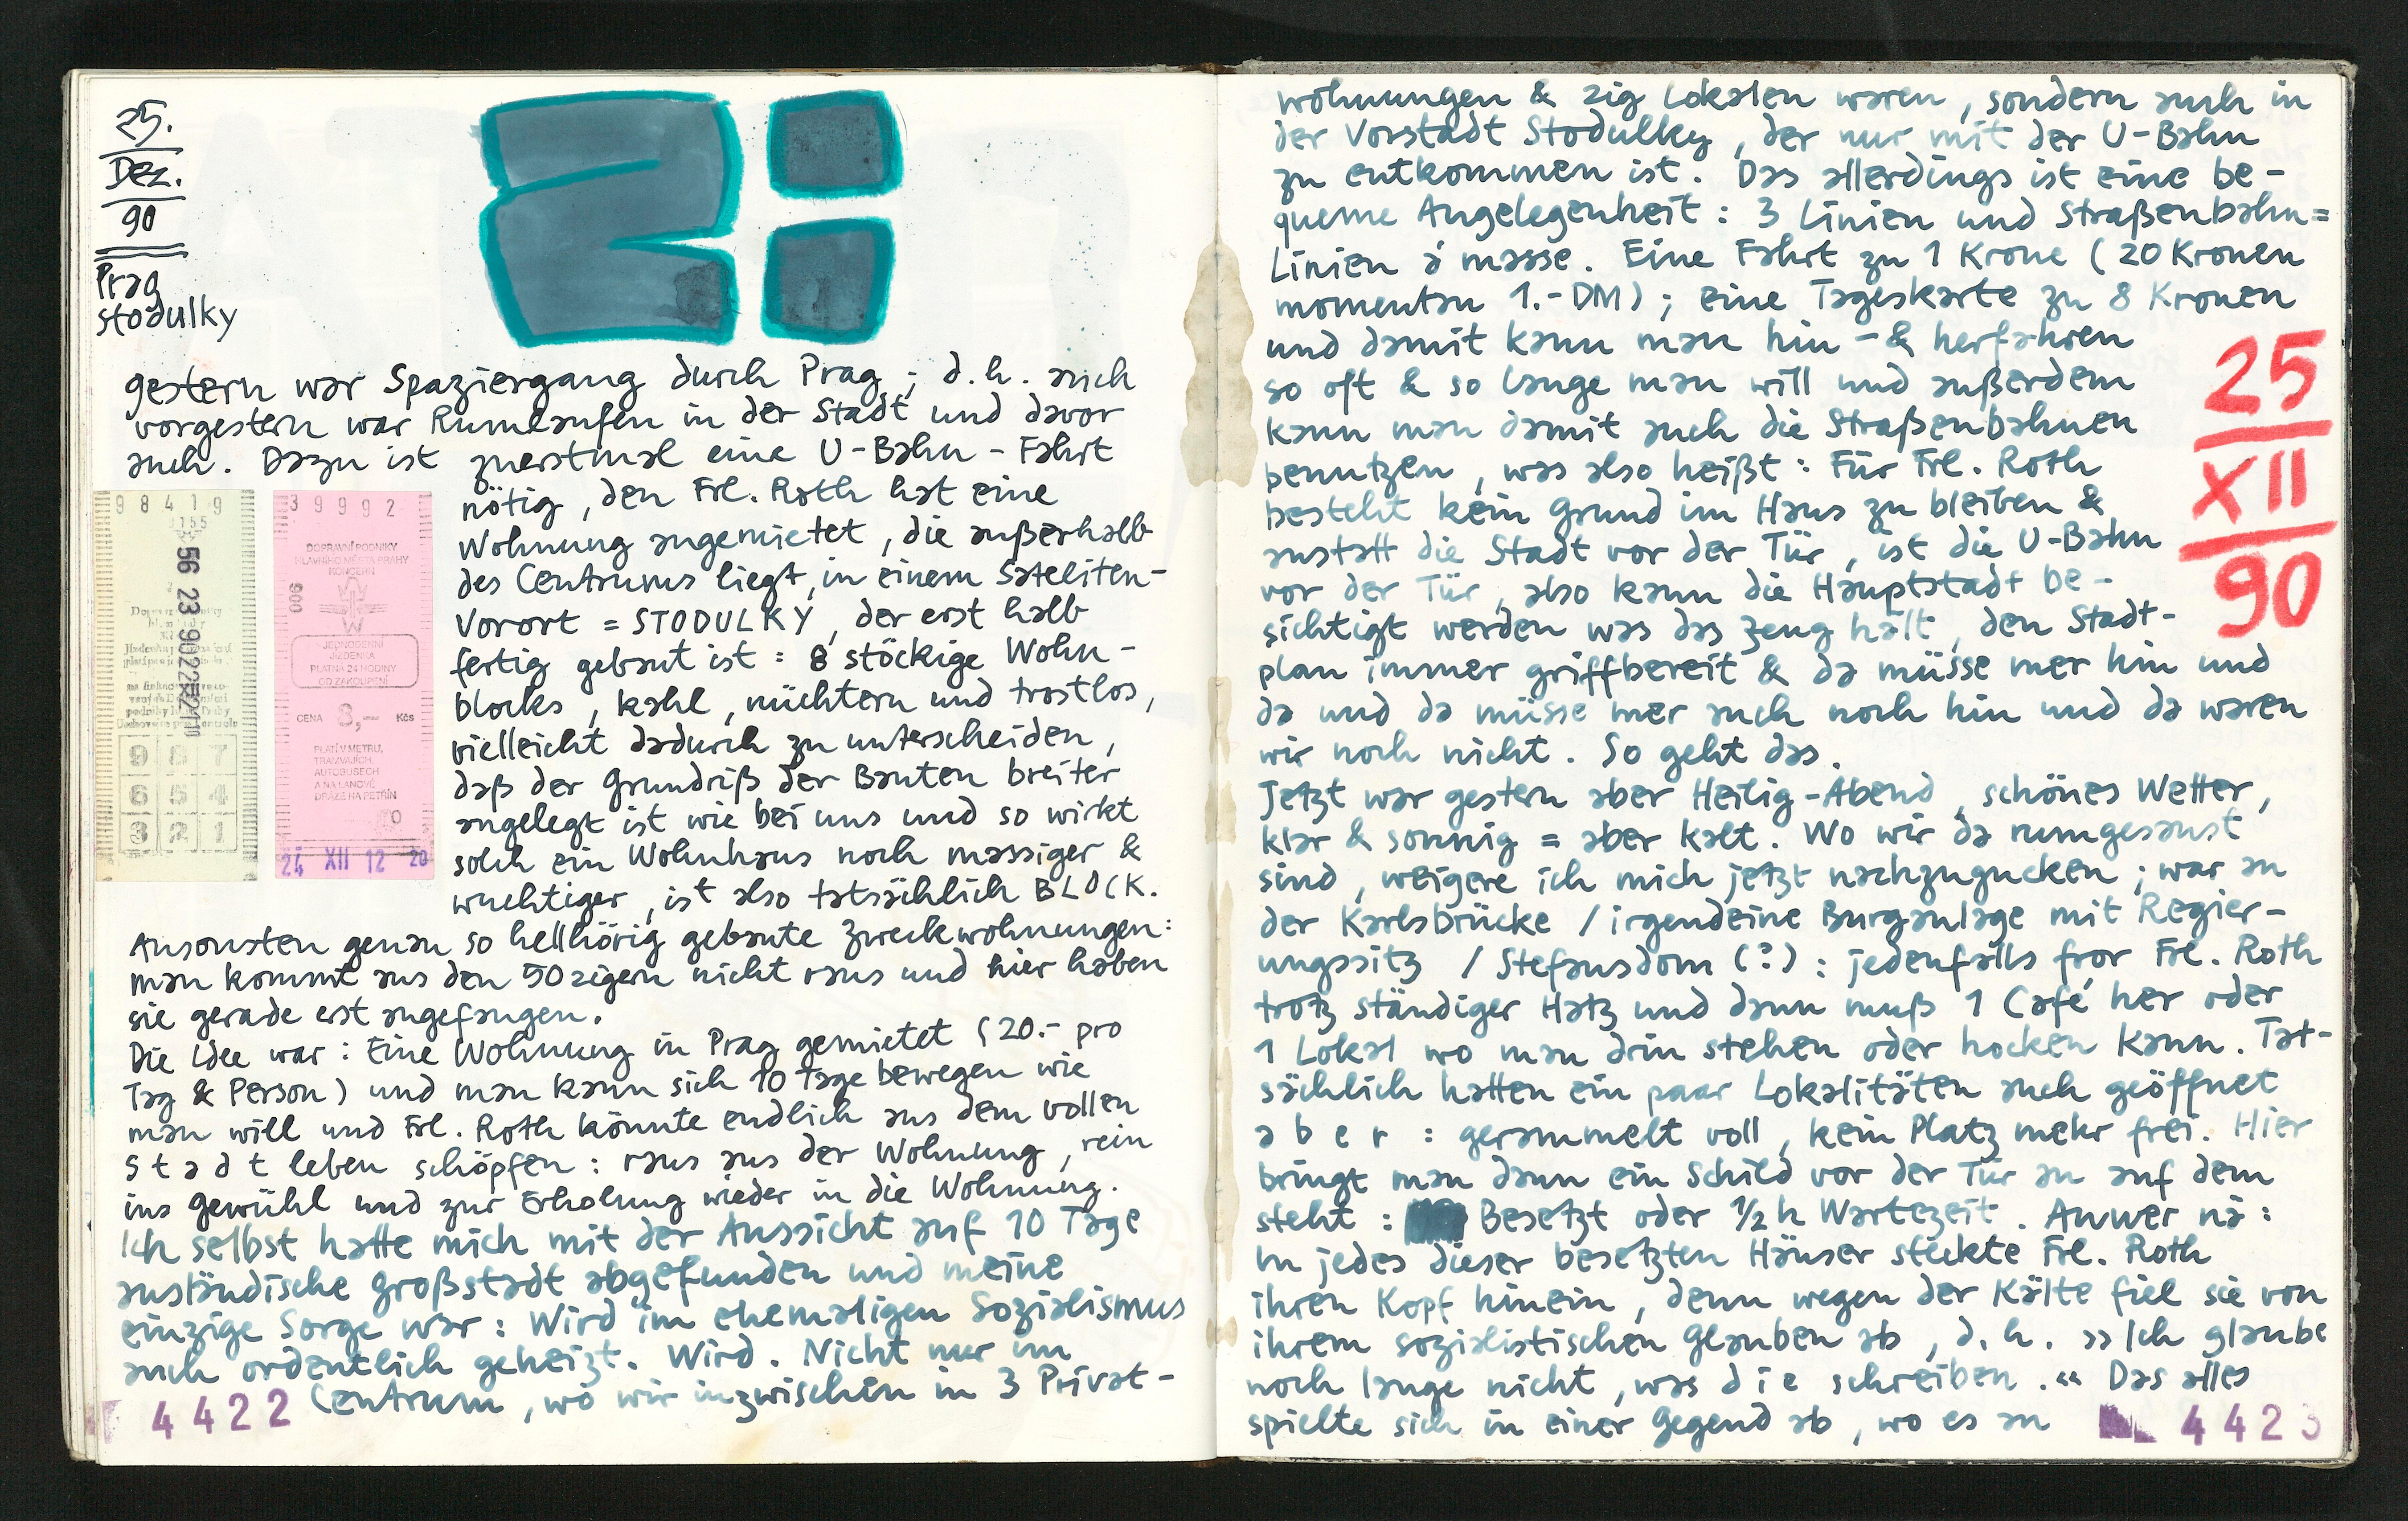 25.
Dez.
90
Prag
Stodulky
gestern war Spaziergang durch Prag; d.h. auch
vorgestern war Rumlaufen in der Stadt und davor
auch. Dazu ist zuerstmal eine U-Bahn-Fahrt
nötig, den Frl. Roth hat eine
Wohnung angemietet, die außerhalb
des Centrums liegt, in einem Sateliten-
Vorort = STODULKY, der erst halb
fertig gebaut ist: 8 stöckige Wohn-
blocks, kahl, nüchtern und trostlos,
vielleicht dadurch zu unterscheiden,
daß der Grundriß der Bauten breiter
angelegt ist wie bei uns und so wirkt
solch ein Wohnhaus noch massiger &
wuchtiger, ist also tatsächlich BLOCK.
Ansonsten genau so hellhörig gebaute Zweckwohnungen:
man kommt aus den 50zigern nicht raus und hier haben
sie gerade erst angefangen.
Die Idee war: Eine Wohnung in Prag gemietet (20.- pro
Tag & Person) und man kann sich 10 Tage bewegen wie
man will und Frl. Roth könnte endlich aus dem vollen
Stadt leben schöpfen: raus aus der Wohnung, rein
ins Gewühl und zur Erholung wieder in die Wohnung.
Ich selbst hatte mich mit der Aussicht auf 10 Tage
ausländische Großstadt abgefunden und meine
einzige Sorge war: Wird im ehemaligen Sozialismus
auch ordentlich geheizt. Wird. Nicht nur im
Centrum, wo wir inzwischen in 3 Privat-
4422
98419
3155
56 23 90
987
654
321
39992
DOPRAVNÍ PODNIKY
HLAVNÍHO MĚSTA PRAHY
KONCERN
009
JEDNODENNÍ
JÍZDENKA
PLATNÁ 24 HODINY
OD ZAKOUPENÍ
CENA 8,— Kčs
PLATÍ V METRU,
TRAMVAJÍCH,
AUTOBUSECH
A NA LANOVÉ
DRÁZE NA PETŘÍN
24 XII 12 20
wohnungen & zig Lokalen waren, sondern auch in
der Vorstadt Stodulky, der nur mit der U-Bahn
zu entkommen ist. Das allerdings ist eine be-
queme Angelegenheit: 3 Linien und Straßenbahn=
Linien á masse. Eine Fahrt zu 1 Krone (20 Kronen
momentan 1.-DM); eine Tageskarte zu 8 Kronen
und damit kann man hin-& herfahren
so oft & so lange man will und außerdem
kann man damit auch die Straßenbahnen
benutzen, was also heißt: Für Frl. Roth
besteht kein Grund im Haus zu bleiben &
anstatt die Stadt vor der Tür, ist die U-Bahn
vor der Tür, also kann die Hauptstadt be-
sichtigt werden was das Zeug hält, den Stadt-
plan immer griffbereit & da müsse mer hin und
da und da müsse mer auch noch hin und da waren
wir noch nicht. So geht das.
Jetzt war gestern aber Heilig-Abend, schönes Wetter,
klar & sonnig = aber kalt. Wo wir da rumgesaust
sind, weigere ich mich jetzt nachzugucken; war an
der Karlsbrücke / irgendeine Burganlage mit Regier-
ungssitz / Stefansdom (?): jedenfalls fror Frl. Roth
trotz ständiger Hatz und dann muß 1 Café her oder
1 Lokal wo man drin stehen oder hocken kann. Tat-
sächlich hatten ein paar Lokalitäten auch geöffnet
aber: gerammelt voll, kein Platz mehr frei. Hier
bringt man dann ein Schild vor der Tür an auf dem
steht: Besetzt oder 1/2 h Wartezeit. Anwer nä:
In jedes dieser besetzten Häuser steckte Frl. Roth
ihren Kopf hinein, denn wegen der Kälte fiel sie von
ihrem sozialistischen Glauben ab, d.h. »Ich glaube
noch lange nicht, was die schreiben.« Das alles
spielte sich in einer Gegend ab, wo es an
25
XII
90
4423